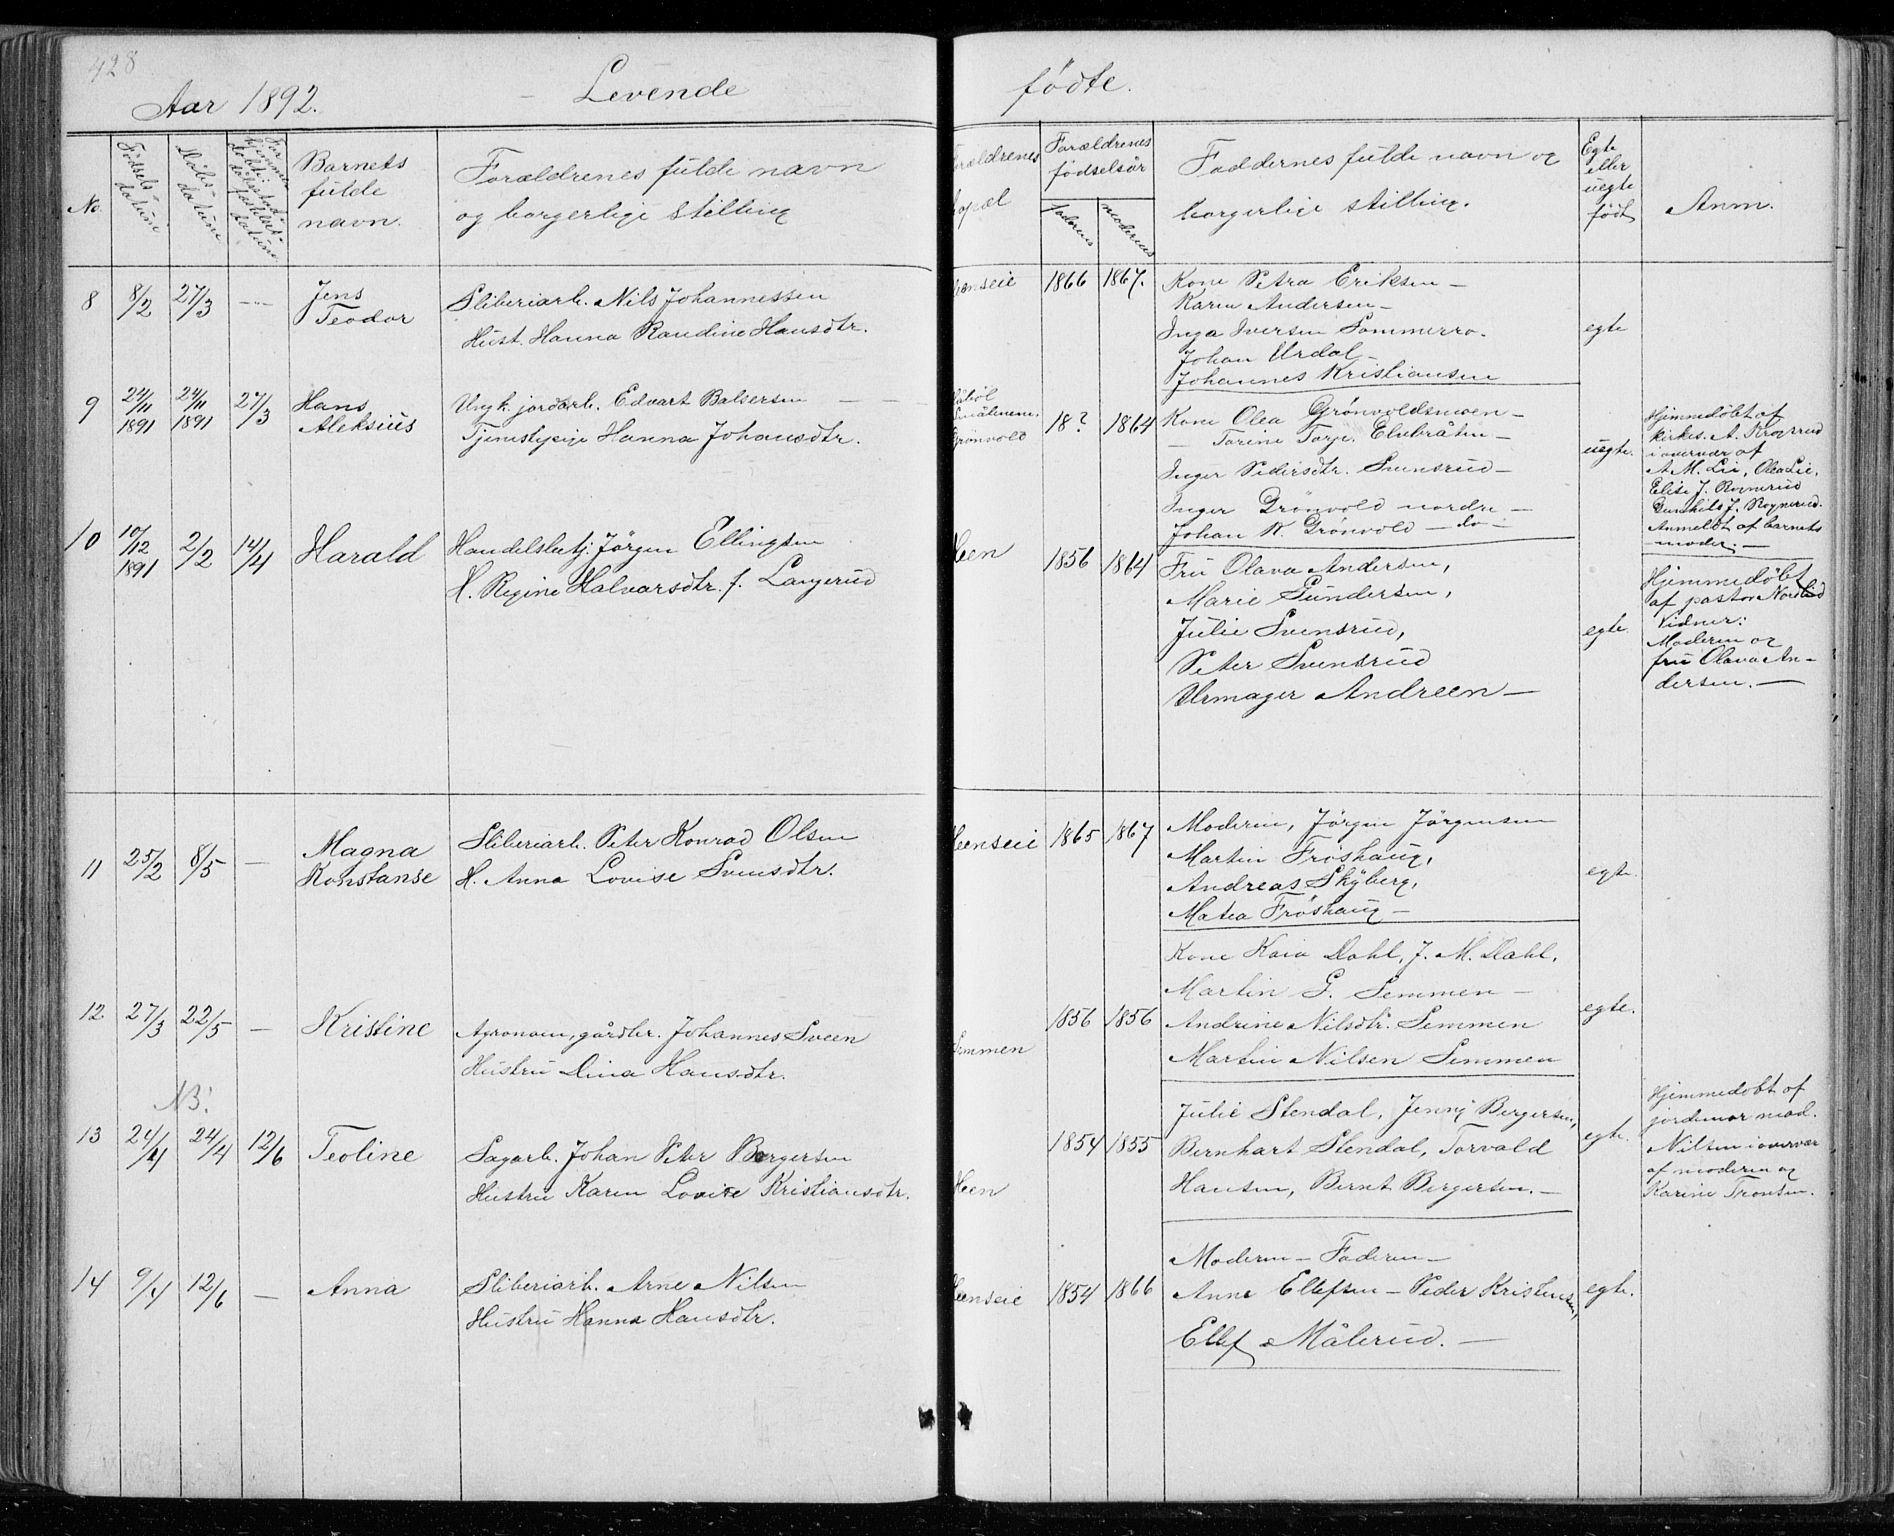 428
Aar 1892.
Levende
fødte.
No.
Fødselsdatum
Dåbsdatum
Barnets
fulde
navn.
Forældrenes fulde navn
og borgerlige stilling
Forældrenes
bopæl
Forældrenes
fødselsår
Faderens
Moderens
Faddernes fulde navn og
borgerlige stilling.
Egte
eller
uegte
født
Anm.
8
8/2
27/3
Jens
Teodor
Sliberiarb. Nils Johannessen
Hust. Hanna Randine Hansdtr.
Hænseie
1866
1867.
Kone Petra Eriksen —
Karen Andersen —
Inga Iversen Sommerro.
Johan Urdal —
Johannes Kristiansen
egte
9
24/11
1891
24/11
1891
27/3
Hans
Aleksius
Ungk. jordarb. Edvart Balsersen —
Tjenestepige Hanna Johansdtr.
Smålenene.
Grönvold
18?
1864
Kone Olea Grønvoldsmoen —
— Torine Torp. Elvebråten —
Inger Pedersdtr. Svensrud —
Inger Grönvold nordre —
Johan K. Grönvold — do —
uegte.
Hjemmedöbt af
kirkes. A. Krogsrud
i overvær af
A. M. Lie, Olea Lie,
Elise J. Rognerud
Gunhild J. Rognerud.
Anmeldt af barnets
moder. —
10
10/12
1891
2/2
14/4
Harald
Handelsbetj. Jörgen Ellingsen
H. Regine Halvarsdtr. f. Langerud
Heen
1856
1864
Fru Olava Andersen,
Marie Gundersen,
Julie Svensrud,
Peter Svensrud
Urmager Andreen —
egte.
Hjemmedöbt
af pastor Nordlid
Vidner:
Moderen og
fru Olava An-
dersen. —
11
25/2
8/5
—
Magna
Konstanse
Sliberiarb. Peter Konrad Olsen
H. Anna Lovise Svensdtr.
Heenseie
1865
1867
Moderen, Jörgen Jörgensen
Martin Frøshaug,
Andreas Skyberg,
Matea Frøshaug —
egte.
12.
27/3
22/5
—
Kristine
Agronom, gårdbr. Johannes Sveen
Hustru Dina Hansdtr.
Semmen
1856
1856
Kone Kaia Dahl, J. M. Dahl,
Martin G. Semmen —
Andrine Nilsdtr. Semmen
Martin Nilsen Semmen
egte.
NB!
13
24/4
24/4
12/6
Teoline
Sagarb. Johan Peter Bergersen
Hustru Karen Lovise Kristiansdtr.
Heen
1854
1855
Julie Stendal, Jenny Bergersen,
Bernhart Stendal, Torvald
Hansen, Bernt Bergersen. —
egte.
Hjemmedøbt af
jordemor mad.
Nilsen i overvær
af moderen og
Karine Tronsen.
14
9/4
12/6
—
Anna
Sliberiarb. Arne Nilsen
Hustru Hanna Hansdtr.
Heenseie
1854
1866
Moderen — Faderen —
Anne Ellefsen — Peder Kristensen,
Ellef Målerud. —
egte.